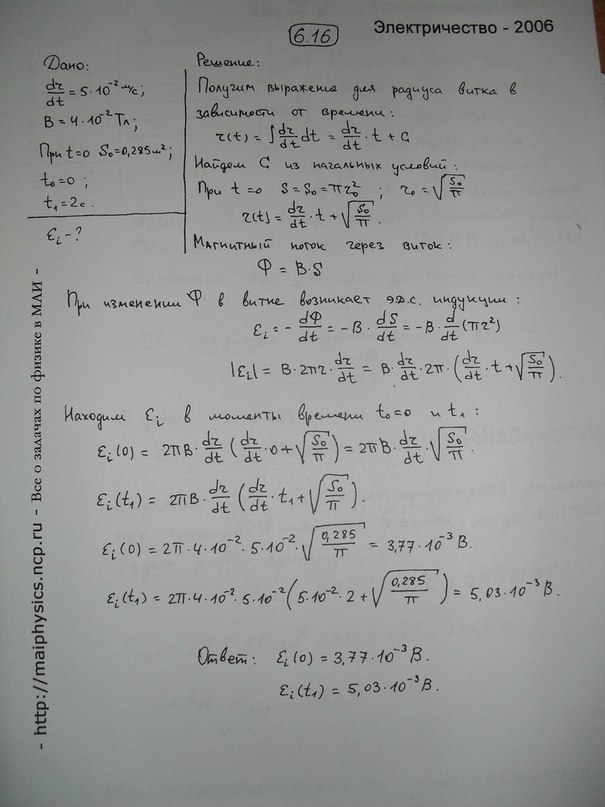 6.16
Электричество - 2006
Дано:
dr/dt = 5·10⁻² м/с;
B = 4·10⁻² Тл;
При t=0 S₀=0,285 м²;
t₀=0 ;
t₁=2c.
εi - ?
Решение:
Получим выражение для радиуса витка в
зависимости от времени:
r(t) = ∫ dr/dt dt = dr/dt · t + C
Найдем C из начальных условий:
При t=0 S=S₀=πr₀² ; r₀=√(S₀/π)
r(t) = dr/dt · t + √(S₀/π).
Магнитный поток через виток:
Ф = B·S
При изменении Ф в витке возникает э.д.с. индукции:
εi = - dФ/dt = -B · dS/dt = -B · d/dt (πr²)
|εi| = B·2πr· dr/dt = B· dr/dt ·2π·( dr/dt · t + √(S₀/π)).
Находим εi в моменты времени t₀=0 и t₁ :
εi(0) = 2πB· dr/dt ( dr/dt ·0 + √(S₀/π)) = 2πB· dr/dt · √(S₀/π).
εi(t₁) = 2πB· dr/dt ( dr/dt · t₁ + √(S₀/π)).
εi(0) = 2π·4·10⁻²·5·10⁻²·√(0,285/π) = 3,77·10⁻³ В.
εi(t₁) = 2π·4·10⁻²·5·10⁻²(5·10⁻²·2 + √(0,285/π)) = 5,03·10⁻³ В.
Ответ: εi(0) = 3,77·10⁻³ В.
εi(t₁) = 5,03·10⁻³ В.
- http://maiphysics.ncp.ru - Все о задачах по физике в МАИ -